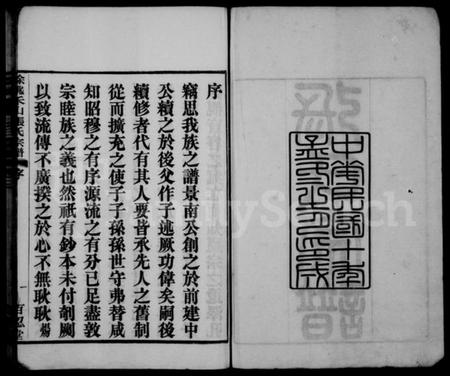 中華民國十年
孟
序
竊思我族之譜景南公創之於前建中
公續之於後父作子述厥功偉矣嗣後
續修者代有其人要皆承先人之舊制
從而擴充之使子子孫孫世守弗替咸
知昭穆之有序源流之有分已足盡敦
宗睦族之義也然祇有鈔本未付剞劂
以致流傳不廣揆之於心不無耿耿
山張氏宗譜 序
一 百忍堂